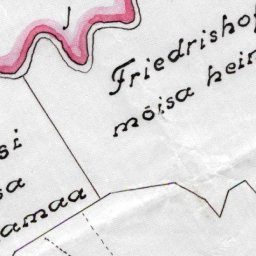 Friedrishof
mõisa hein
si
sa
amaa